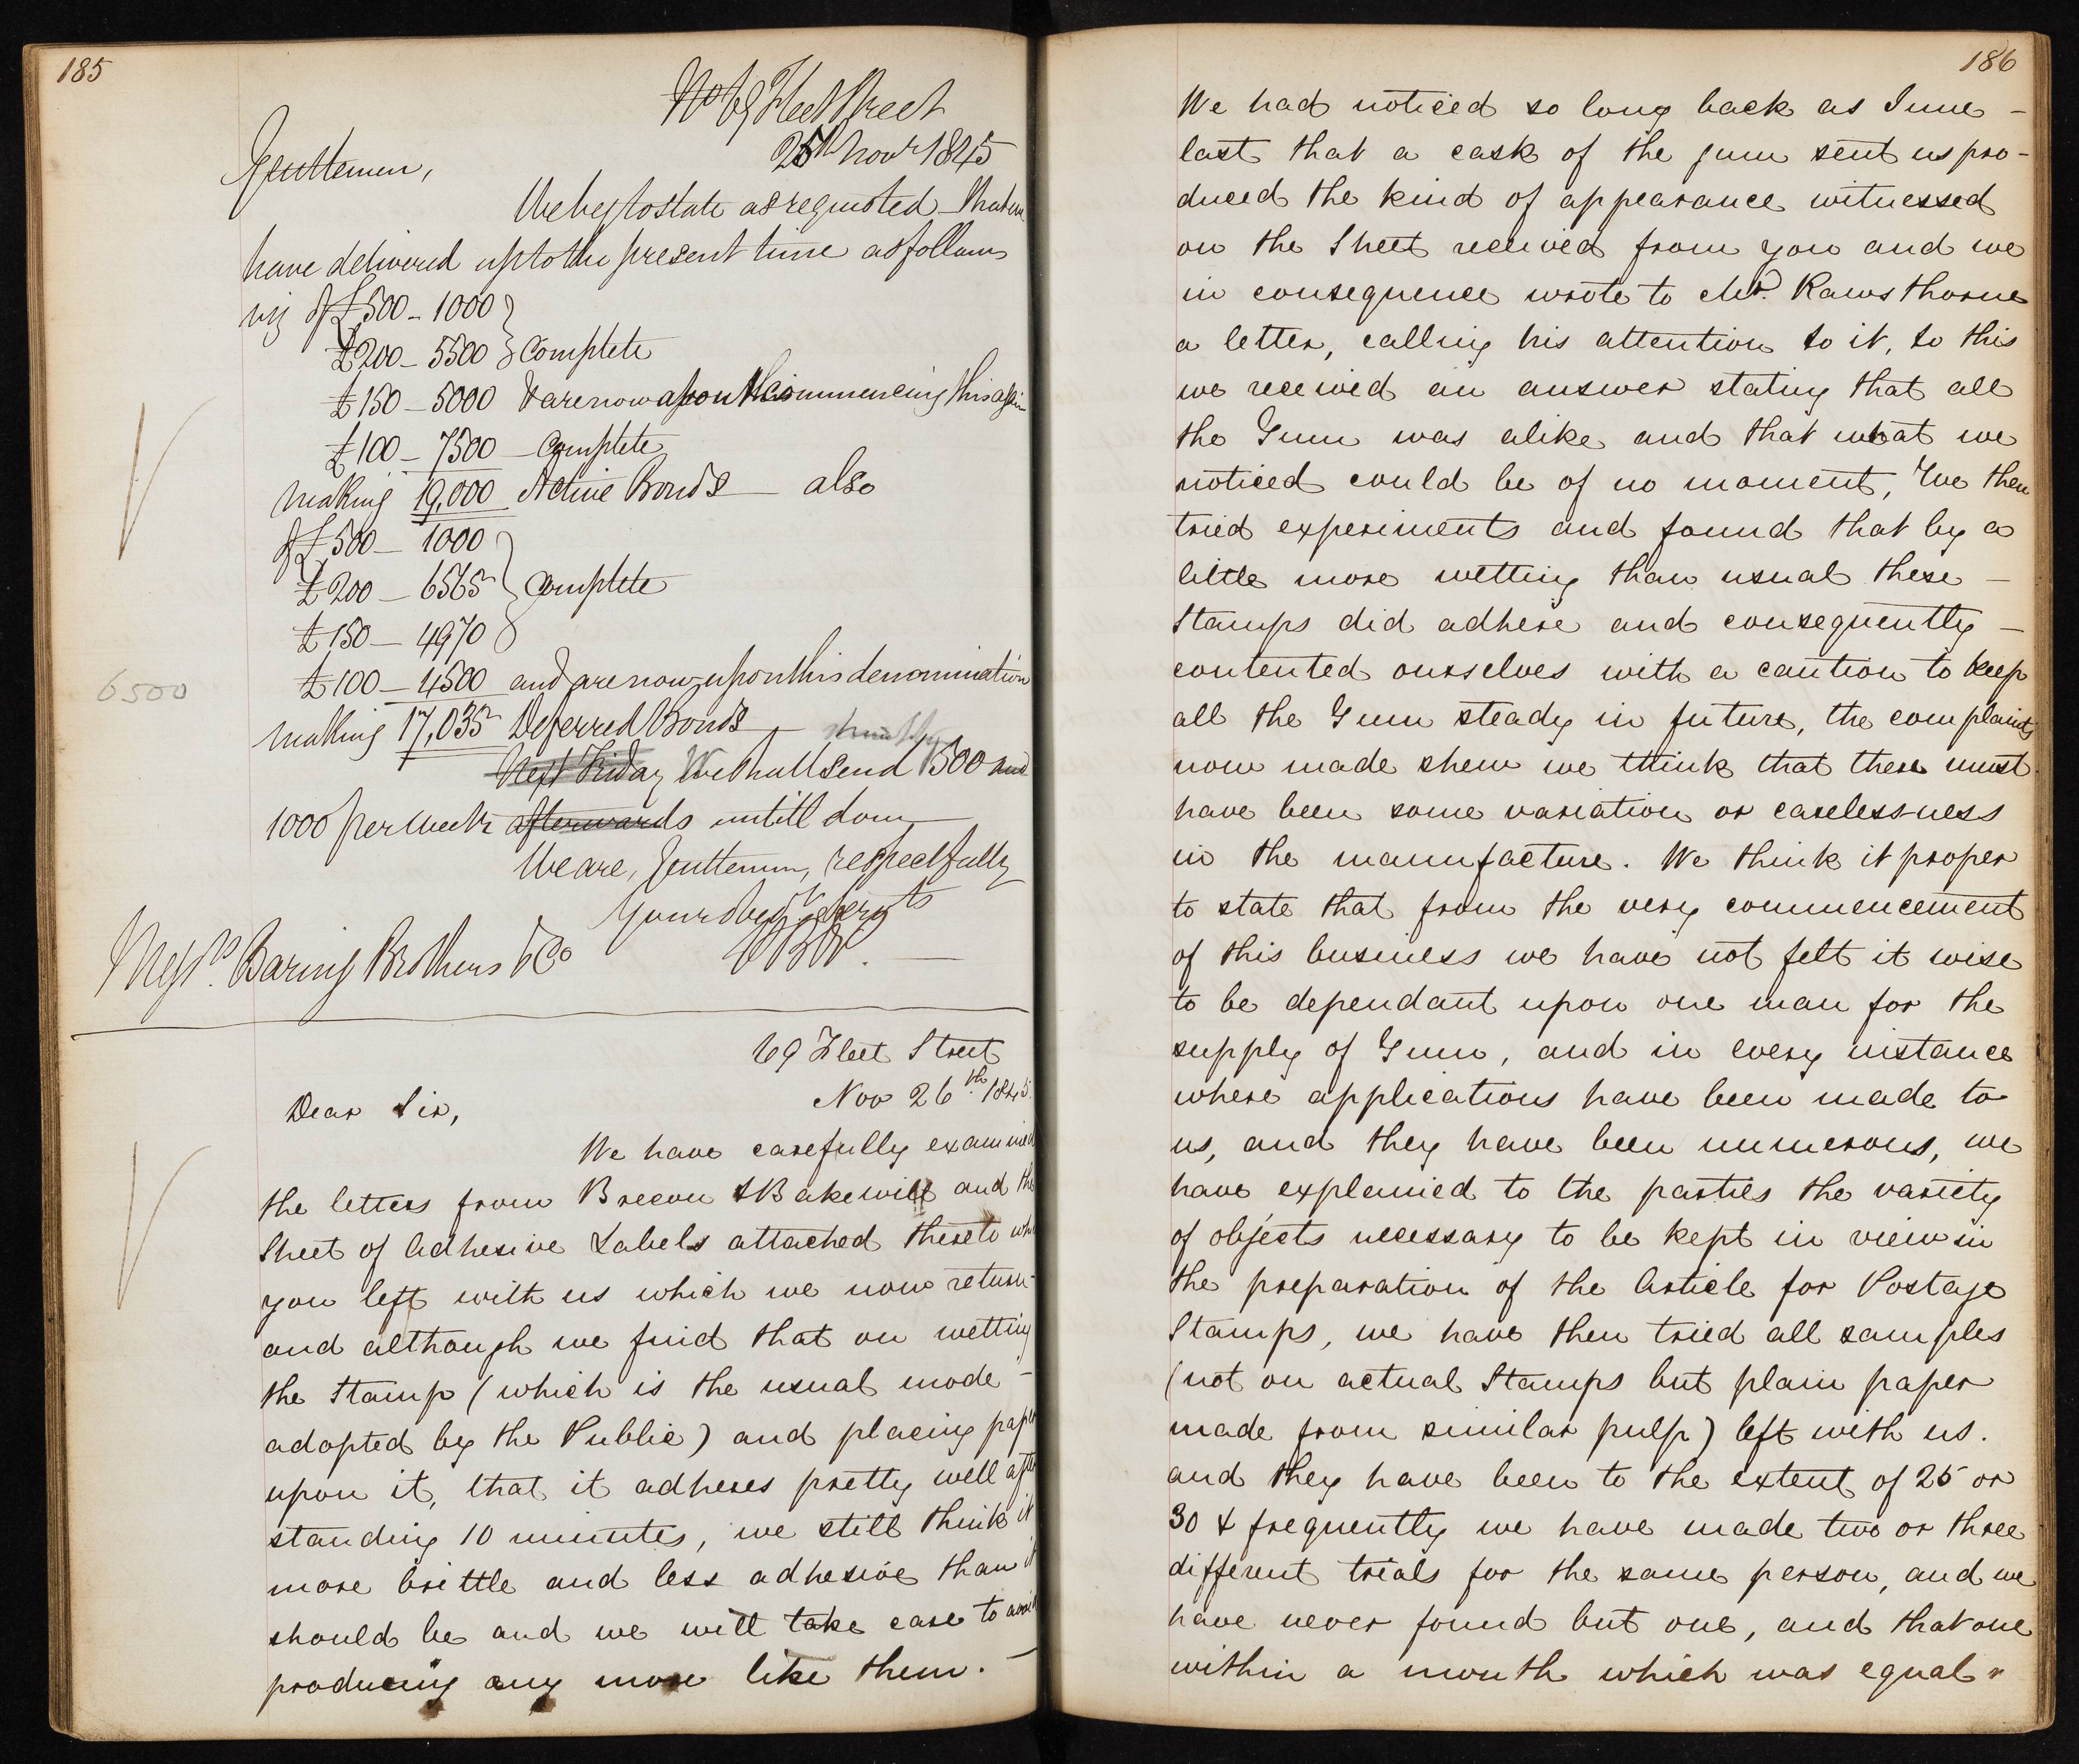 185
No 69 Fleet Street
25th Novr 1845
Gentlemen,
We beg to state as requested that we
have delivered up to the present time as follows
viz of £500 - 1000
£200 - 5500 } Complete
£150 - 5000 & are now upon this again
£100 - 7500 - Complete
Making 19,000 Active Bonds - also
of £500 - 1000
£200 - 6565 } Complete
£150 - 4970
£100 - 4500 and are now upon this denomination
6500
making 17,035 Deferred Bonds -
Next Friday We shall send 1500 and
1000 per week afterwards untill done
We are, Gentlemen, respectfully
Your obedt servts
PB&P. -
Messrs. Baring Brothers & Co
69 Fleet Street
Nov 26th. 1845.
Dear Sir,
We have carefully examined
the letters from Brecon & Bakewill and the
Sheet of Adhesive Labels attached thereto
you left with us which we now return -
and although we find that on wetting
the Stamp (which is the usual mode -
adopted by the Public) and placing paper
upon it, that it adheres pretty well after
standing 10 minutes, we still think it
more brittle and less adhesive than it
should be and we will take care to avoid
producing any more like them. -
186
We had noticed so long back as June -
last that a cask of the gum sent us pro-
duced the kind of appearance witnessed
on the Sheet received from you and we
in consequence wrote to Mr. Rawsthorne
a letter, calling his attention to it, to this
we received an answer stating that all
the Gum was alike and that what we
noticed could be of no moment, We then
tried experiments and found that by a
little more wetting than usual these -
Stamps did adhere and consequently -
contented ourselves with a caution to keep
all the Gum steady in future, the complaints
now made shew we think that there must
have been some variation or carelessness
in the manufacture. We think it proper
to state that from the very commencement
of this business we have not felt it wise
to be dependant upon one man for the
supply of Gum, and in every instance
where applications have been made to
us, and they have been numerous, we
have explained to the parties the variety
of objects necessary to be kept in view in
the preparation of the Article for Postage
Stamps, we have then tried all samples
(not on actual Stamps but plain paper
made from similar pulp) left with us.
and they have been to the extent of 25 or
30 & frequently we have made two or three
different trials for the same person, and we
have never found but one, and that one
within a month which was equal